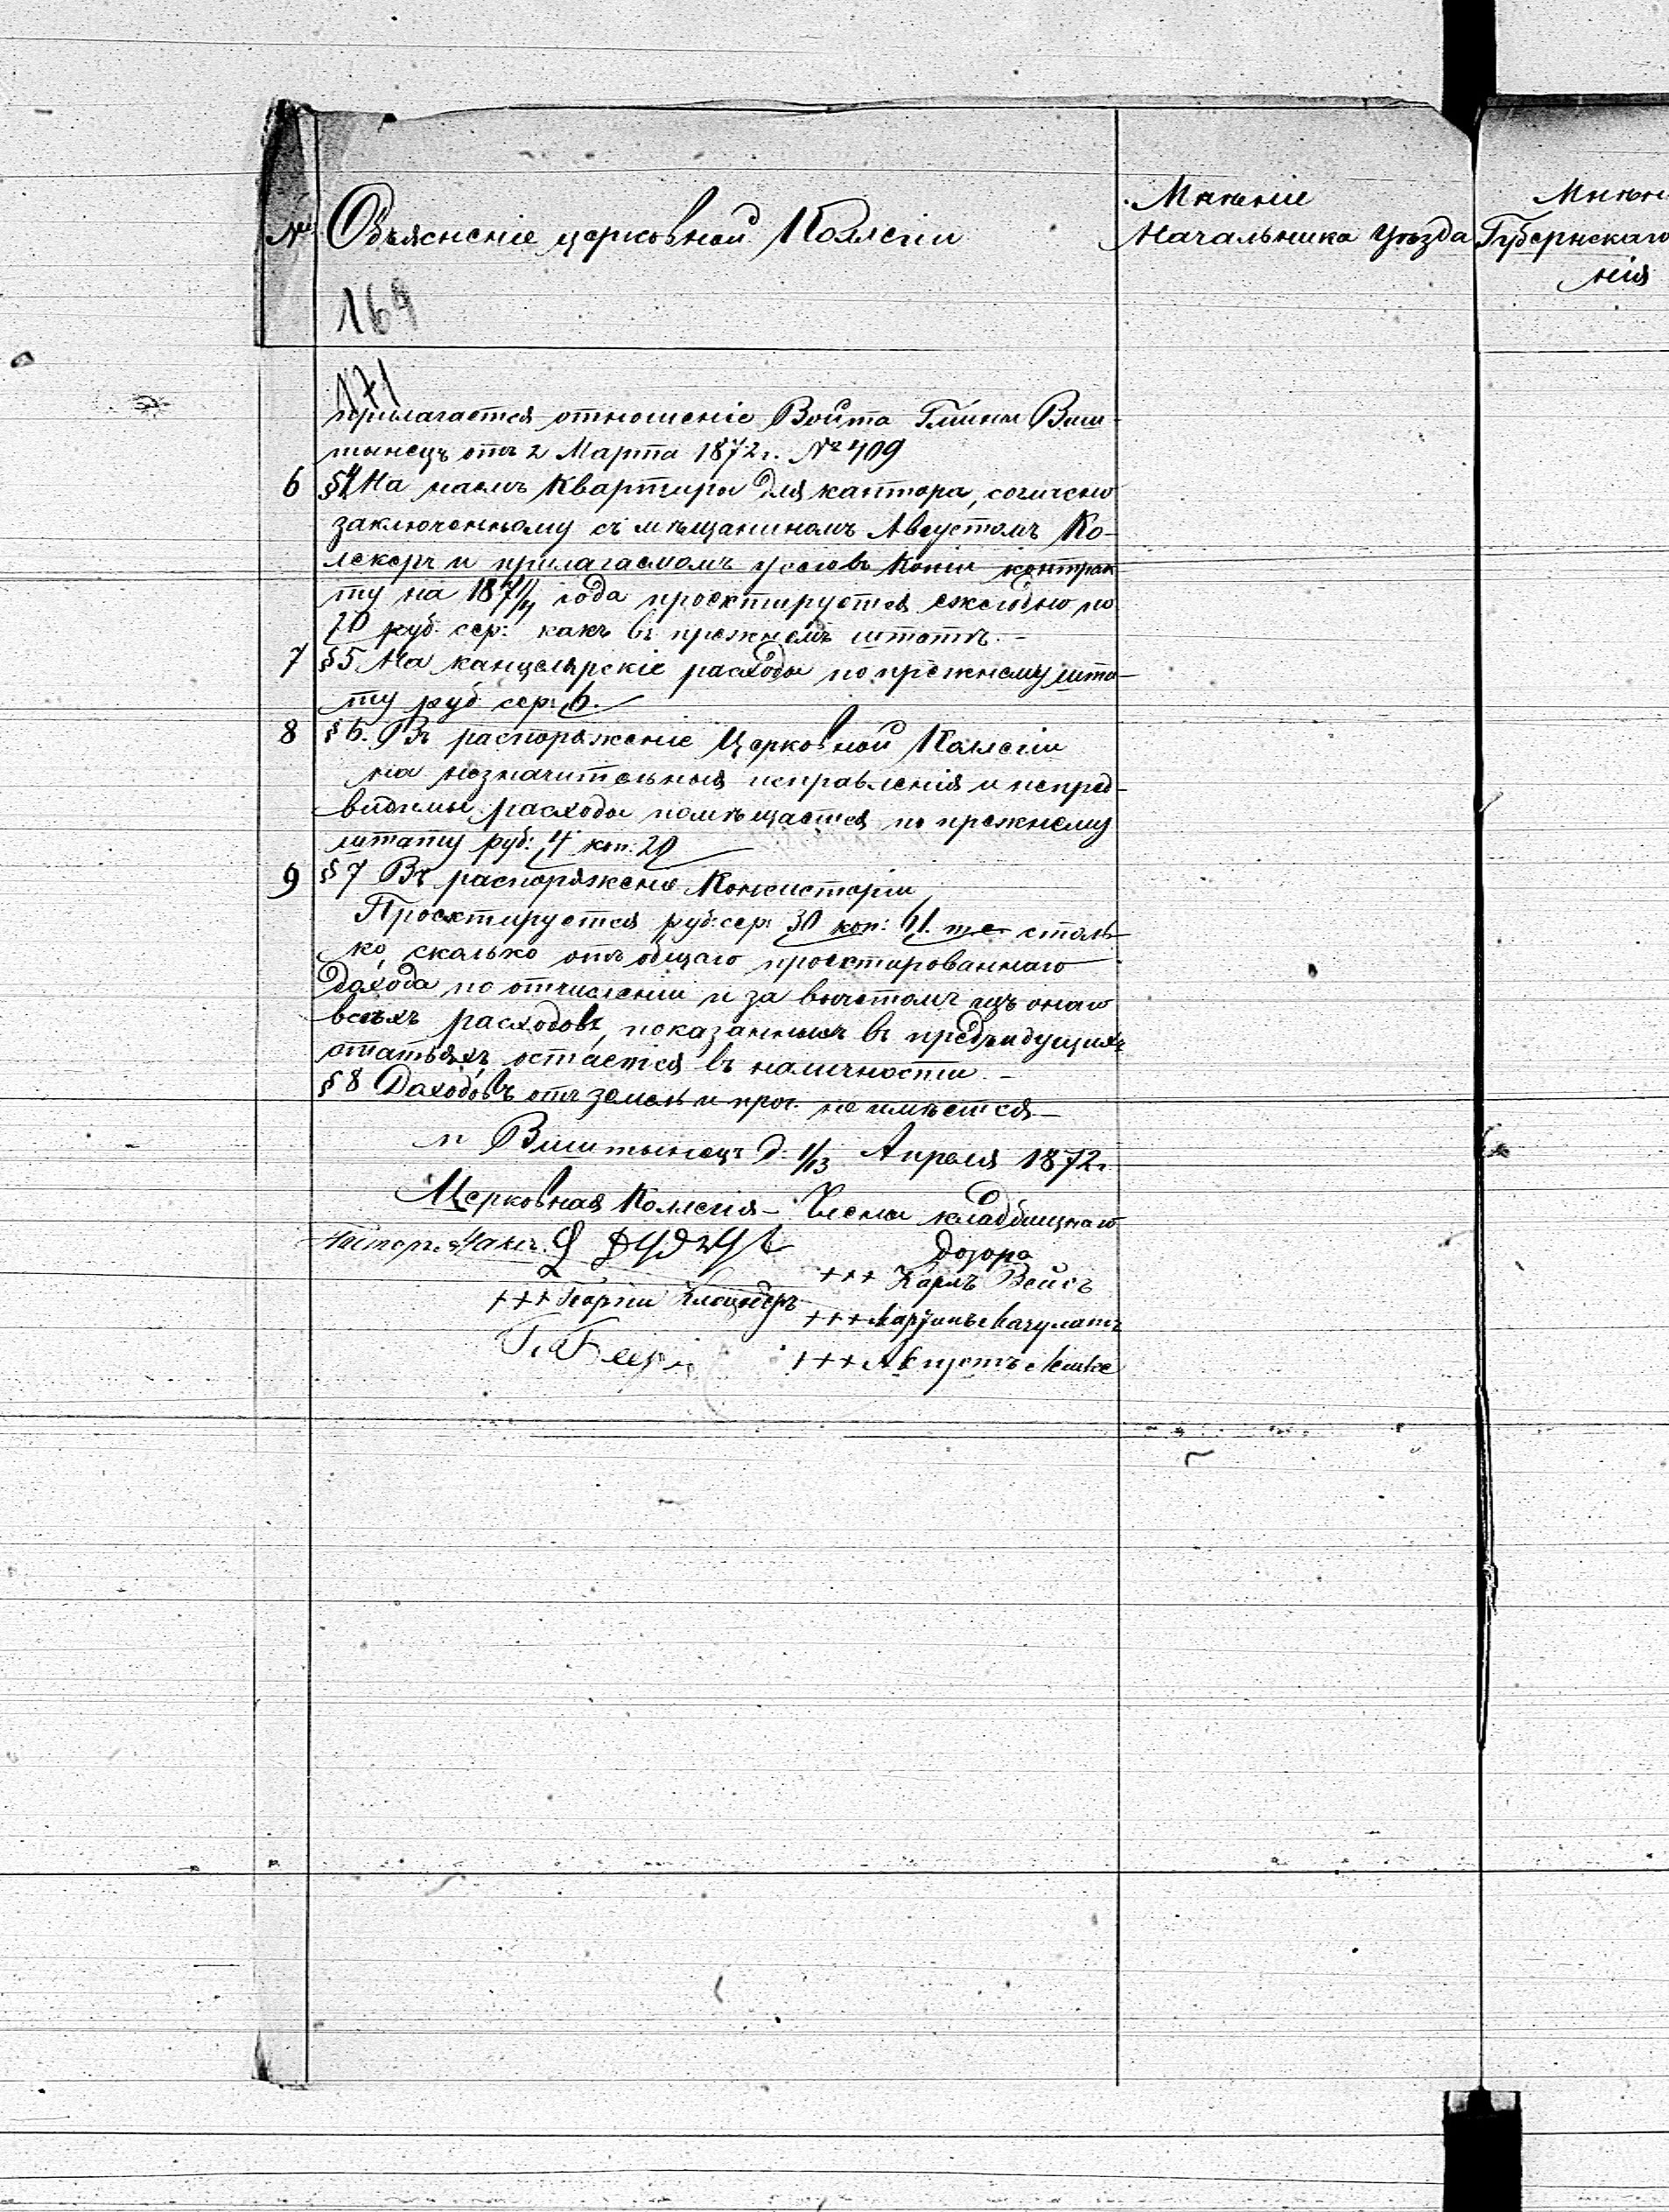 № Объясненіе церковной Коллегіи
Мнѣніе
Начальника Уѣзда
Мнѣн
Губернскаго
нія
169
171
прилагается отношеніе Войта Гмины Виш-
тынецъ отъ 2 Марта 1872 г. № 409
6 §4 На наемъ квартиры для кантора, согласно
заключенному съ мѣщаниномъ Августомъ Ко-
лекеръ и прилагаемомъ у сего въ копіи контрак
ту на 1871/4 года проектируется ежегодно по
20 руб. сер: какъ въ прежнемъ штатѣ. -
7 §5 На канцелярскіе расходы по прежнему шта-
ту руб. сер: 6.
8 §6. Въ распоряженіе Церковной Коллегіи
на незначительныя исправленія и непред-
видимые расходы помѣщается по прежнему
штату руб: 4 коп. 20
9 §7 Въ распоряженіе Консисторіи
Проектируется руб: сер: 30 коп: 61. т.е. столь-
ко, сколько отъ общаго проектированнаго
дахода по отчисленіи и за вычетомъ изъ онаго
всѣхъ расходовъ, показанныхъ въ предъидущихъ
статьяхъ, остается въ наличности. -
§8 Даходовъ отъ земель и проч. не имѣется -
п Виштынецъ д. 1/13 Апреля 1872 г.
Церковная Коллегія - Члены кладбищнаго
дозора
Пасторъ
+++ Карлъ Вейсъ
+++ Георгій
+++ Мартинъ
+++ Августъ